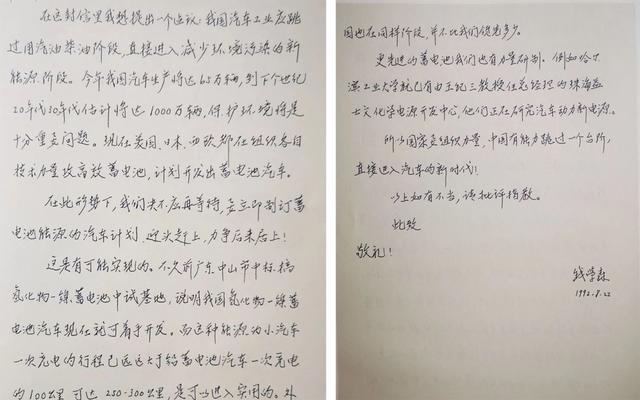 在这封信里我想提出一个建议:我国汽车工业应跳
过用汽油柴油阶段,直接进入减少环境污染的新
能源阶段。今年我国汽车生产将达65万辆,到下个世纪
20年代30年代估计将达1000万辆,保护环境将是
十分重要问题。现在美国、日本、西欧都在组织各自
技术力量攻高效蓄电池,计划开发出蓄电池汽车。
在此形势下,我们决不应再等待,要立即制订蓄
电池能源的汽车计划,迎头赶上,力争后来居上!
这是有可能实现的。不久前广东中山市中标,搞
氢化物—镍蓄电池中试基地,说明我国氢化物—镍蓄
电池汽车现在就可着手开发。而这种能源的小汽车
一次充电的行程已远远大于铅蓄电池汽车一次充电
的100公里,可达250-300公里,是可以进入实用的。外
国也在同样阶段,并不比我们领先多少。
更先进的蓄电池我们也有力量研制。例如哈尔
滨工业大学就已有由王纪三教授任总经理的珠海益
士文化学电源开发中心,他们正在研究汽车动力新电源。
所以国家要组织力量,中国有能力跳过一个台阶,
直接进入汽车的新时代!
以上如有不当,请批评指教。
此致
敬礼!
钱学森
1992.8.22